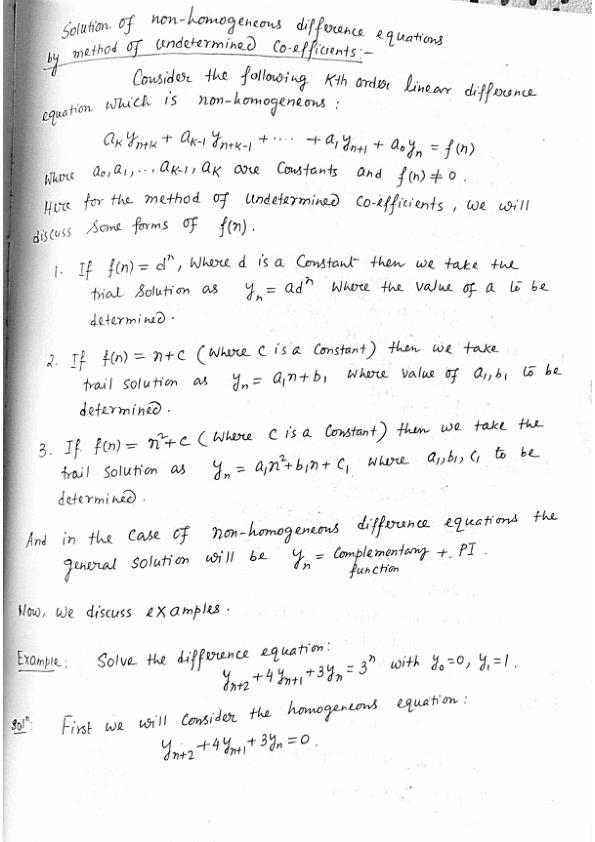 Solution of non-homogeneous difference equations
by method of undetermined Co-efficients:-
Consider the following Kth order linear difference
equation which is non-homogeneous :
aₖ yₙ₊ₖ + aₖ₋₁ yₙ₊ₖ₋₁ + .... + a₁ yₙ₊₁ + a₀yₙ = f(n)
Where a₀, a₁, ... aₖ₋₁, aₖ are Constants and f(n) ≠ 0.
Here for the method of Undetermined Co-efficients, we will
discuss some forms of f(n).
1. If f(n) = dⁿ, Where d is a Constant then we take the
trial Solution as yₙ = adⁿ Where the value of a to be
determined.
2. If f(n) = n+c (Where c is a Constant) then we take
trail solution as yₙ = a₁n+b₁ Where value of a₁, b₁ to be
determined.
3. If f(n) = n²+c (Where c is a Constant) then we take the
trail Solution as yₙ = a₁n²+b₁n+c₁ Where a₁, b₁, c₁ to be
determined.
And in the Case of non-homogeneous difference equations the
general solution will be yₙ = Complementary + PI.
function
Now, we discuss examples.
Example: Solve the difference equation:
yₙ₊₂ + 4yₙ₊₁ + 3yₙ = 3ⁿ with y₀=0, y₁=1.
Solⁿ: First we will Consider the homogeneous equation:
yₙ₊₂ + 4yₙ₊₁ + 3yₙ = 0.